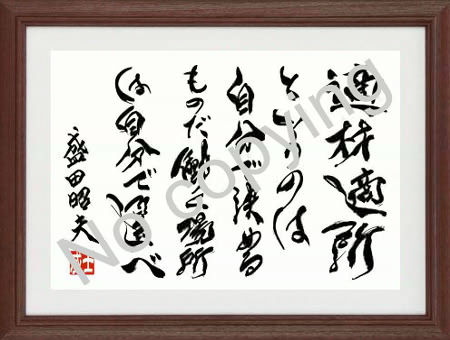 適材適所
というのは
自分で決める
ものだ働く場所
は自分で選べ
盛田昭夫
No copying